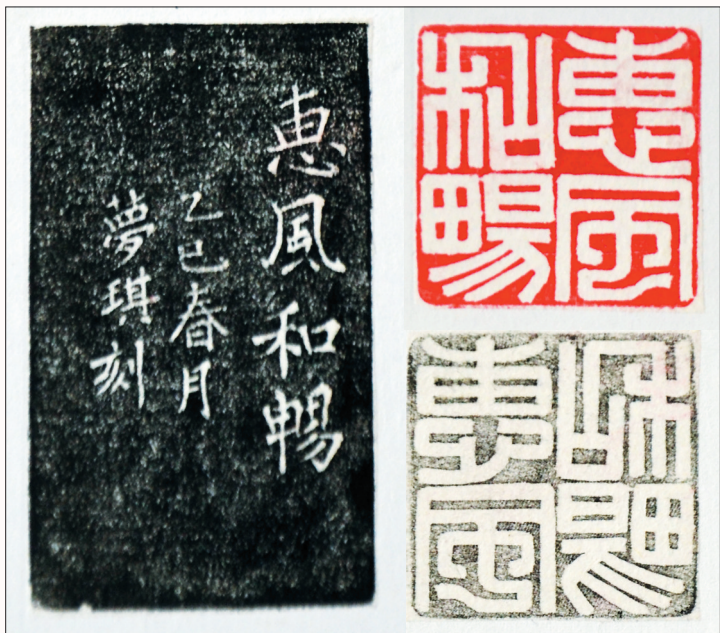 惠風和暢
乙巳春月
夢琪刻
惠風
和暢
惠風
和暢